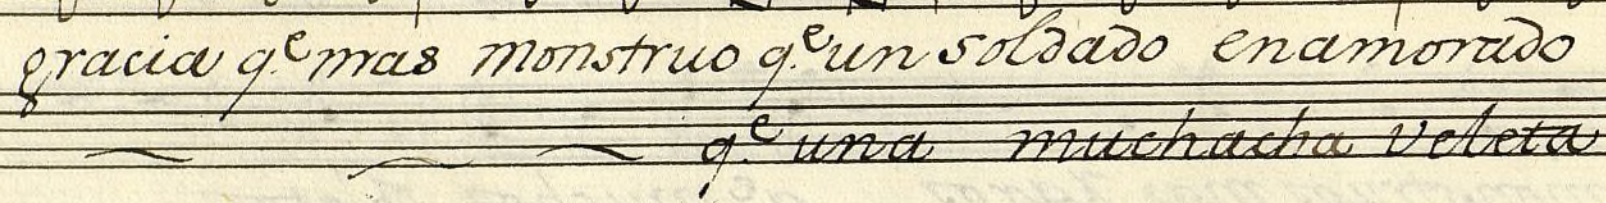 gracia q.e mas monstruo q.e un soldado enamorado
q.e una muchacha veleta